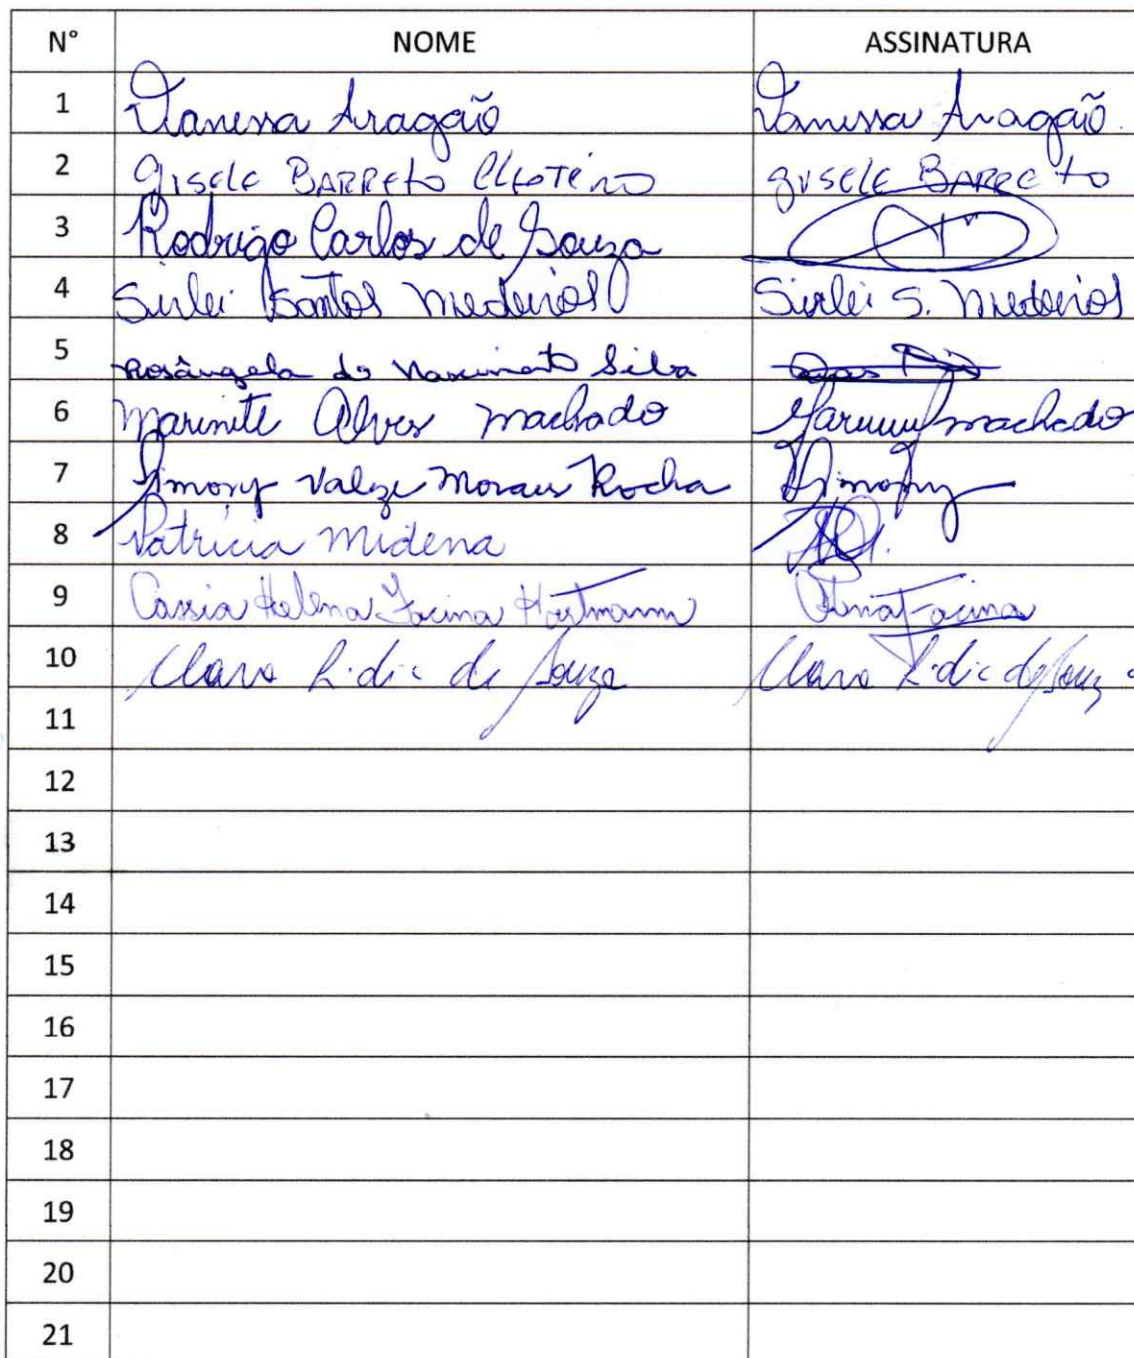 N° NOME ASSINATURA
1 Vanessa Aragão Vanessa Aragão
2 Gisele BARRETO gisele BARRETO
3 Rodrigo Carlos de Souza
4 Sirlei Santos Medeiros Sirlei S. Medeiros
5 Rosângela do Nascimento Silva
6 Marinete Alves machado machado
7 Simony Moraes Rocha Simony
8 Patrícia Midena
9 Cassia Helena Facina Hartmann Facina
10 Clara Lidia de Souza Clara Lidia de Souza
11
12
13
14
15
16
17
18
19
20
21